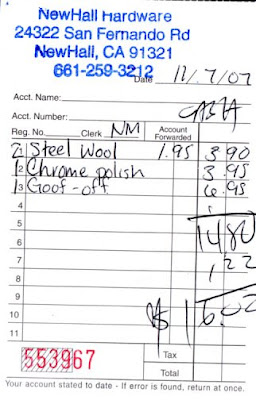 NewHall Hardware
24322 San Fernando Rd
NewHall, CA 91321
661-259-3212
Date 11/7/07
Acct. Name:
CASH
Acct. Number:
Reg. No. Clerk NM Account Forwarded
2 Steel Wool 1.95 3.90
1 2 Chrome polish 3.95
1 3 Goof-off 6.95
4
5 14.80
6
7 1.22
8
9
10 $ 16.02
11
553967 Tax
Total
Your account stated to date - If error is found, return at once.